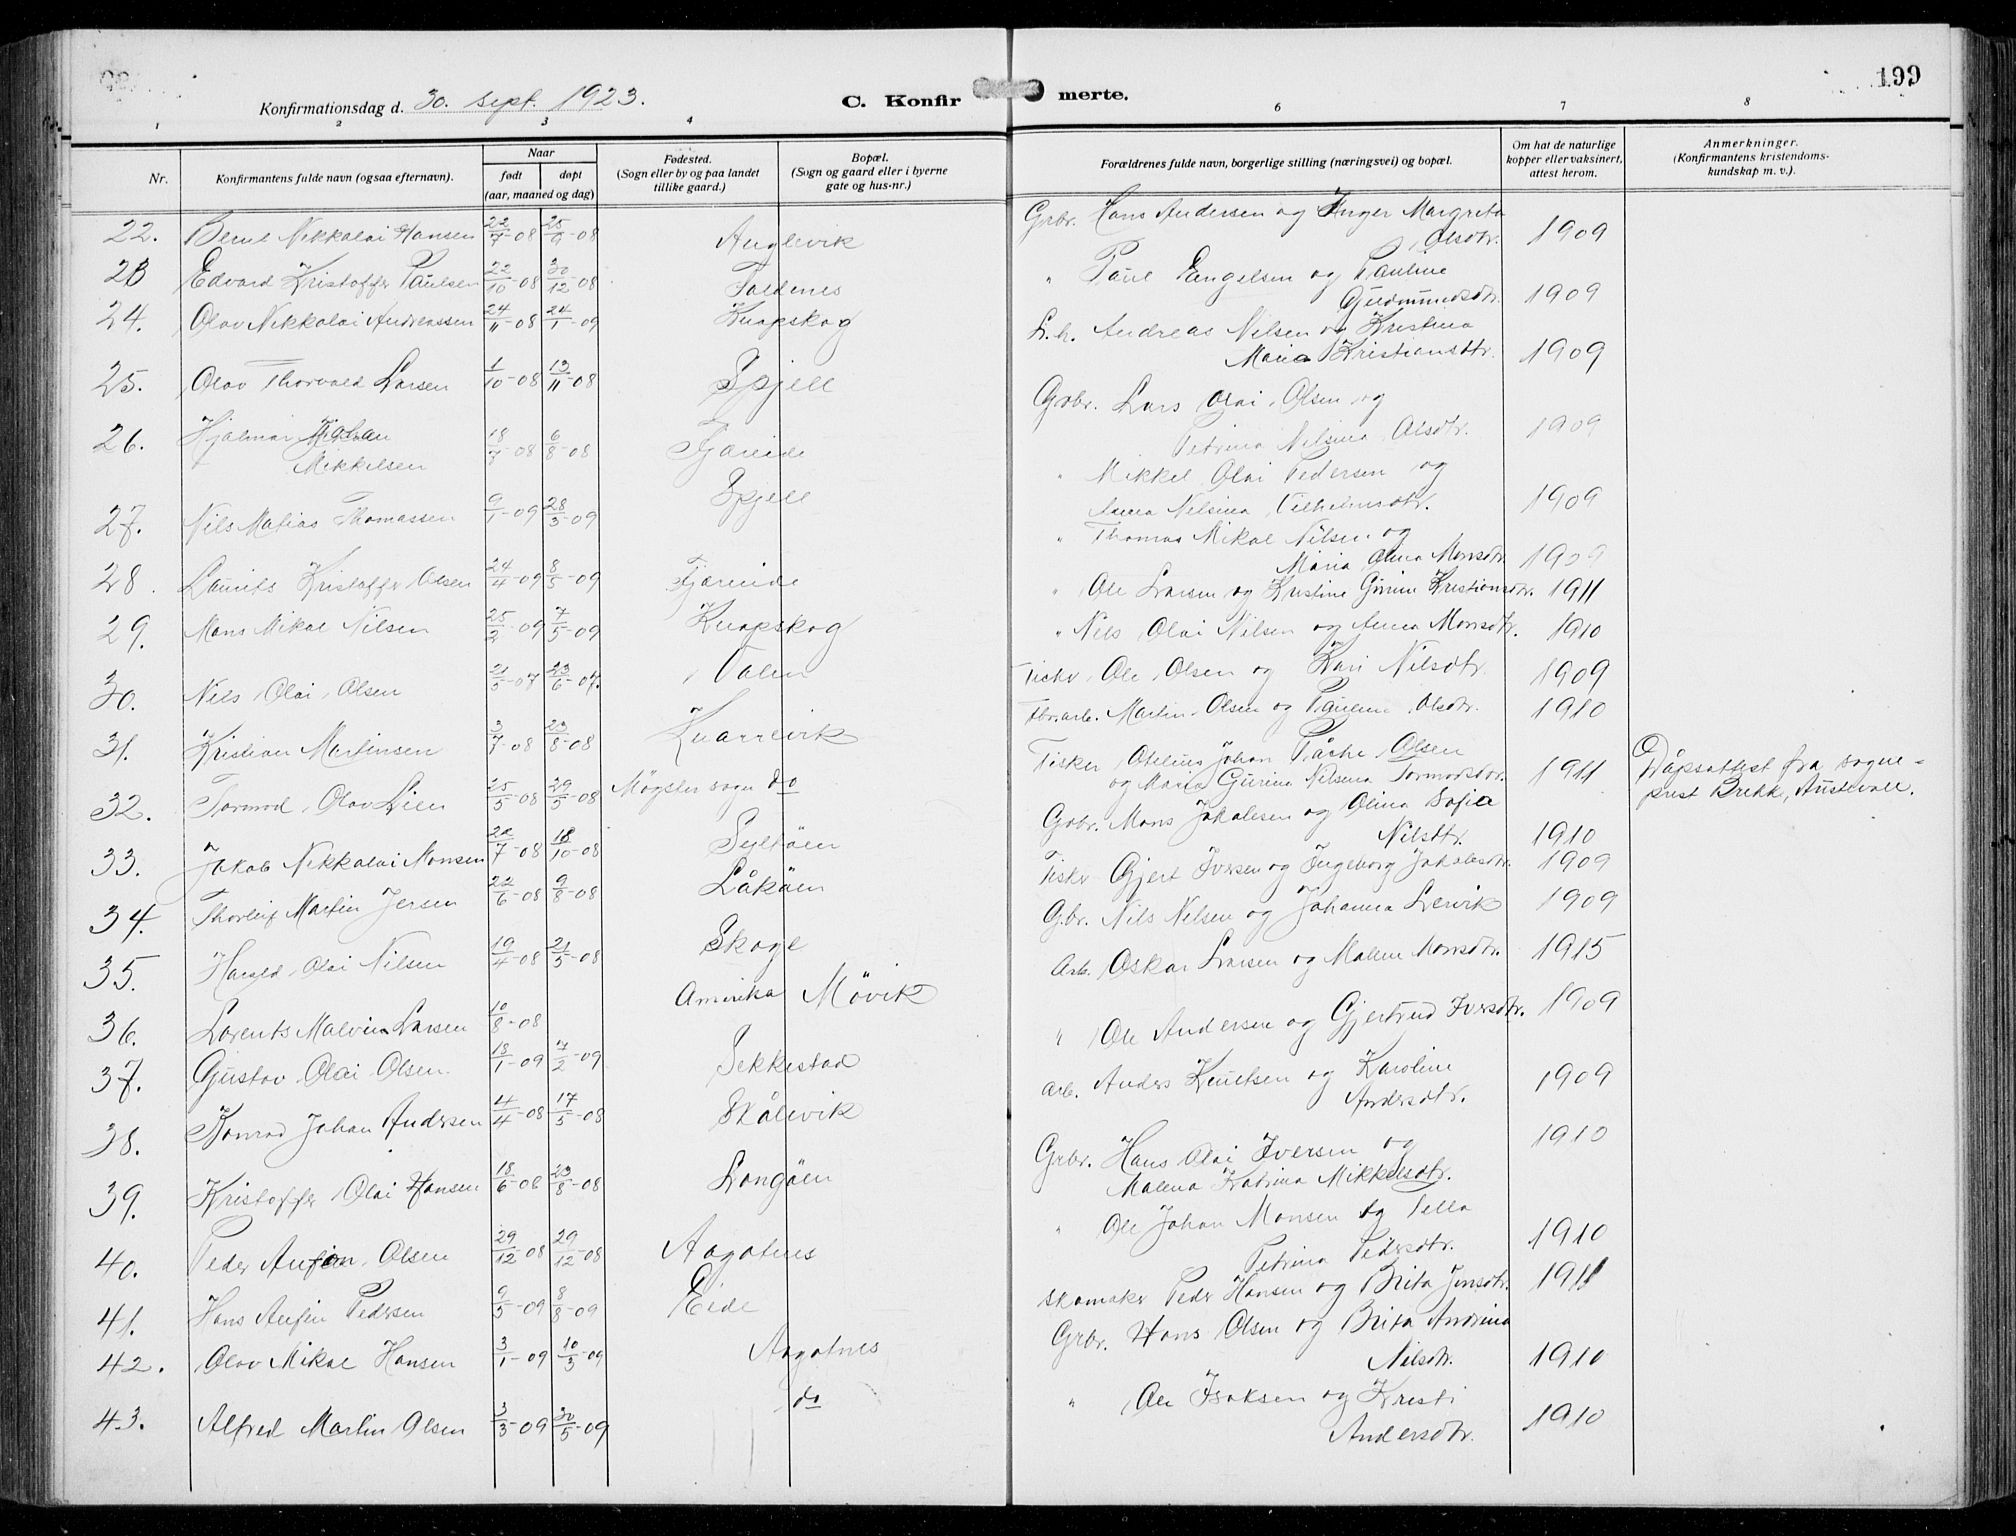 199
Konfirmationsdag d. 30. sept. 1923.
C. Konfirmerte.
1 2 3 4 6 7 8
Nr.
Konfirmantens fulde navn (ogsaa efternavn).
Naar
født døpt
(aar, maaned og dag)
Fødested.
(Sogn eller by og paa landet
tillike gaard.)
Bopæl.
(Sogn og gaard eller i byerne
gate og hus-nr.)
Forældrenes fulde navn, borgerlige stilling (næringsvei) og bopæl.
Om hat de naturlige
kopper eller vaksinert,
attest herom.
Anmerkninger.
(Konfirmantens kristendoms-
kundskap m. v.).
22. Bernt Nikkolai Hansen 22/7-08 25/9-08 Anglevik Grbr. Hans Andersen og Inger Margreta
Olsdtr. 1909
23 Edvard Kristoffer Paulsen 22/10-08 30/12-08 Foldnes " Paul Engelsen og Pauline
Gudmundsdtr. 1909
24. Olav Nikkolai Andreassen 24/11-08 24/1-09 Knapskog Andreas Nilsen og Kristina
Maria Kristiansdtr. 1909
25. Olav Thorvald Larsen 1/10-08 13/11-08 Spjell Grbr. Lars Olai Olsen og
Petrina Nilsina Olsdtr. 1909
26. Hjalmar Johan
Mikkelsen 18/7-08 6/8-08 Fjæreide " Mikkel Olai Pedersen og
Anna Nilsina Vilhelmsdtr. 1909
27. Nils Matias Thomassen 9/1-09 28/3-09 Spjell " Thomas Mikal Nilsen og
Maria Anna Monsdtr. 1909
28. Laurits Kristoffer Olsen 24/4-09 8/5-09 Fjæreide " Ole Larsen og Kristine Gurine Kristiansdtr. 1911
29. Mons Mikal Nilsen 25/2-09 7/5-09 Knapskog " Nils Olai Nilsen og Anna Monsdtr. 1910
30. Nils Olai Olsen 21/5-07 23/6-07. Valen Fisker Ole Olsen og Kari Nilsdtr. 1909
31. Kristian Martinsen 3/7-08 23/8-08 Knarrevik Martin Olsen og Pauline Olsdtr. 1910
32. Tormod Olav Lien 25/5-08 29/5-08 Møgster sogn do Fisker Otelius Johan Påske Olsen
og Maria Gurina Nilsina Tormodsdtr. 1911 Dåpsattest fra sogne-
prest Brekk, Austevoll.
33. Jakob Nikkolai Monsen 20/7-08 18/10-08 Syltøen Grbr. Mons Jakobsen og Olina Sofia
Nilsdtr. 1910
34. Thorleif Martin Jersen 22/6-08 9/8-08 Låkøen Fisker Gjert Iversen og Ingeborg Jakobsdtr. 1909
35. Harald Olai Nilsen 19/4-08 21/5-08 Skoge Gbr. Nils Nilsen og Johanna Lervik 1909
36. Lorents Malvin Larsen 10/8-08 Amerika Møvik Arb. Oskar Larsen og Malene Monsdtr. 1915
37. Gustav Olai Olsen 18/1-09 7/2-09 Sekkestad " Ole Andersen og Gjertrud Iversdtr. 1909
38. Konrad Johan Andersen 4/4-08 17/5-08 Skålevik Arb. Anders Knutsen og Karoline
Andersdtr. 1909
39. Kristoffer Olai Hansen 18/6-08 23/8-08 Longøen Grbr. Hans Olai Iversen og
Malena Katrina Mikkelsdtr. 1910
40. Peder Anfin Olsen 29/12-08 29/12-08 Aagotnes " Ole Johan Monsen og Pella
Petrina Pedersdtr. 1910
41. Hans Anfin Pedersen 9/5-09 8/8-09 Eide Skomaker Peder Hansen og Brita Jensdtr. 1911
42. Olav Mikal Hansen 3/1-09 10/3-09 Aagotnes Grbr. Hans Olsen og Brita Andrina
Nilsdtr. 1910
43. Alfred Martin Olsen 3/3-09 30/5-09 do " Ole Isaksen og Kristi
Andersdtr. 1910